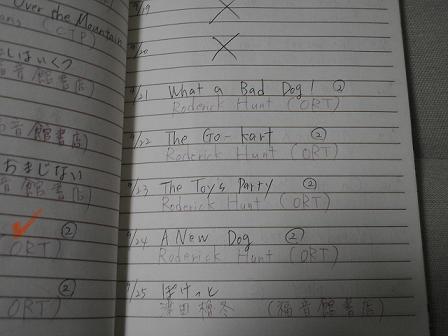 Over the Mountain
(CTP)
はいくつ
音館書店)
音館書店)
おまじない
音館書店)
②
(ORT)
②
ORT)
9/19 ×
9/20 ×
9/21 What a Bad Dog! ②
Roderick Hunt (ORT)
9/22 The Go-kart ②
Roderick Hunt (ORT)
9/23 The Toys Party ②
Roderick Hunt (ORT)
9/24 A New Dog ②
Roderick Hunt (ORT)
9/25 ぽけっと
(福音館書店)